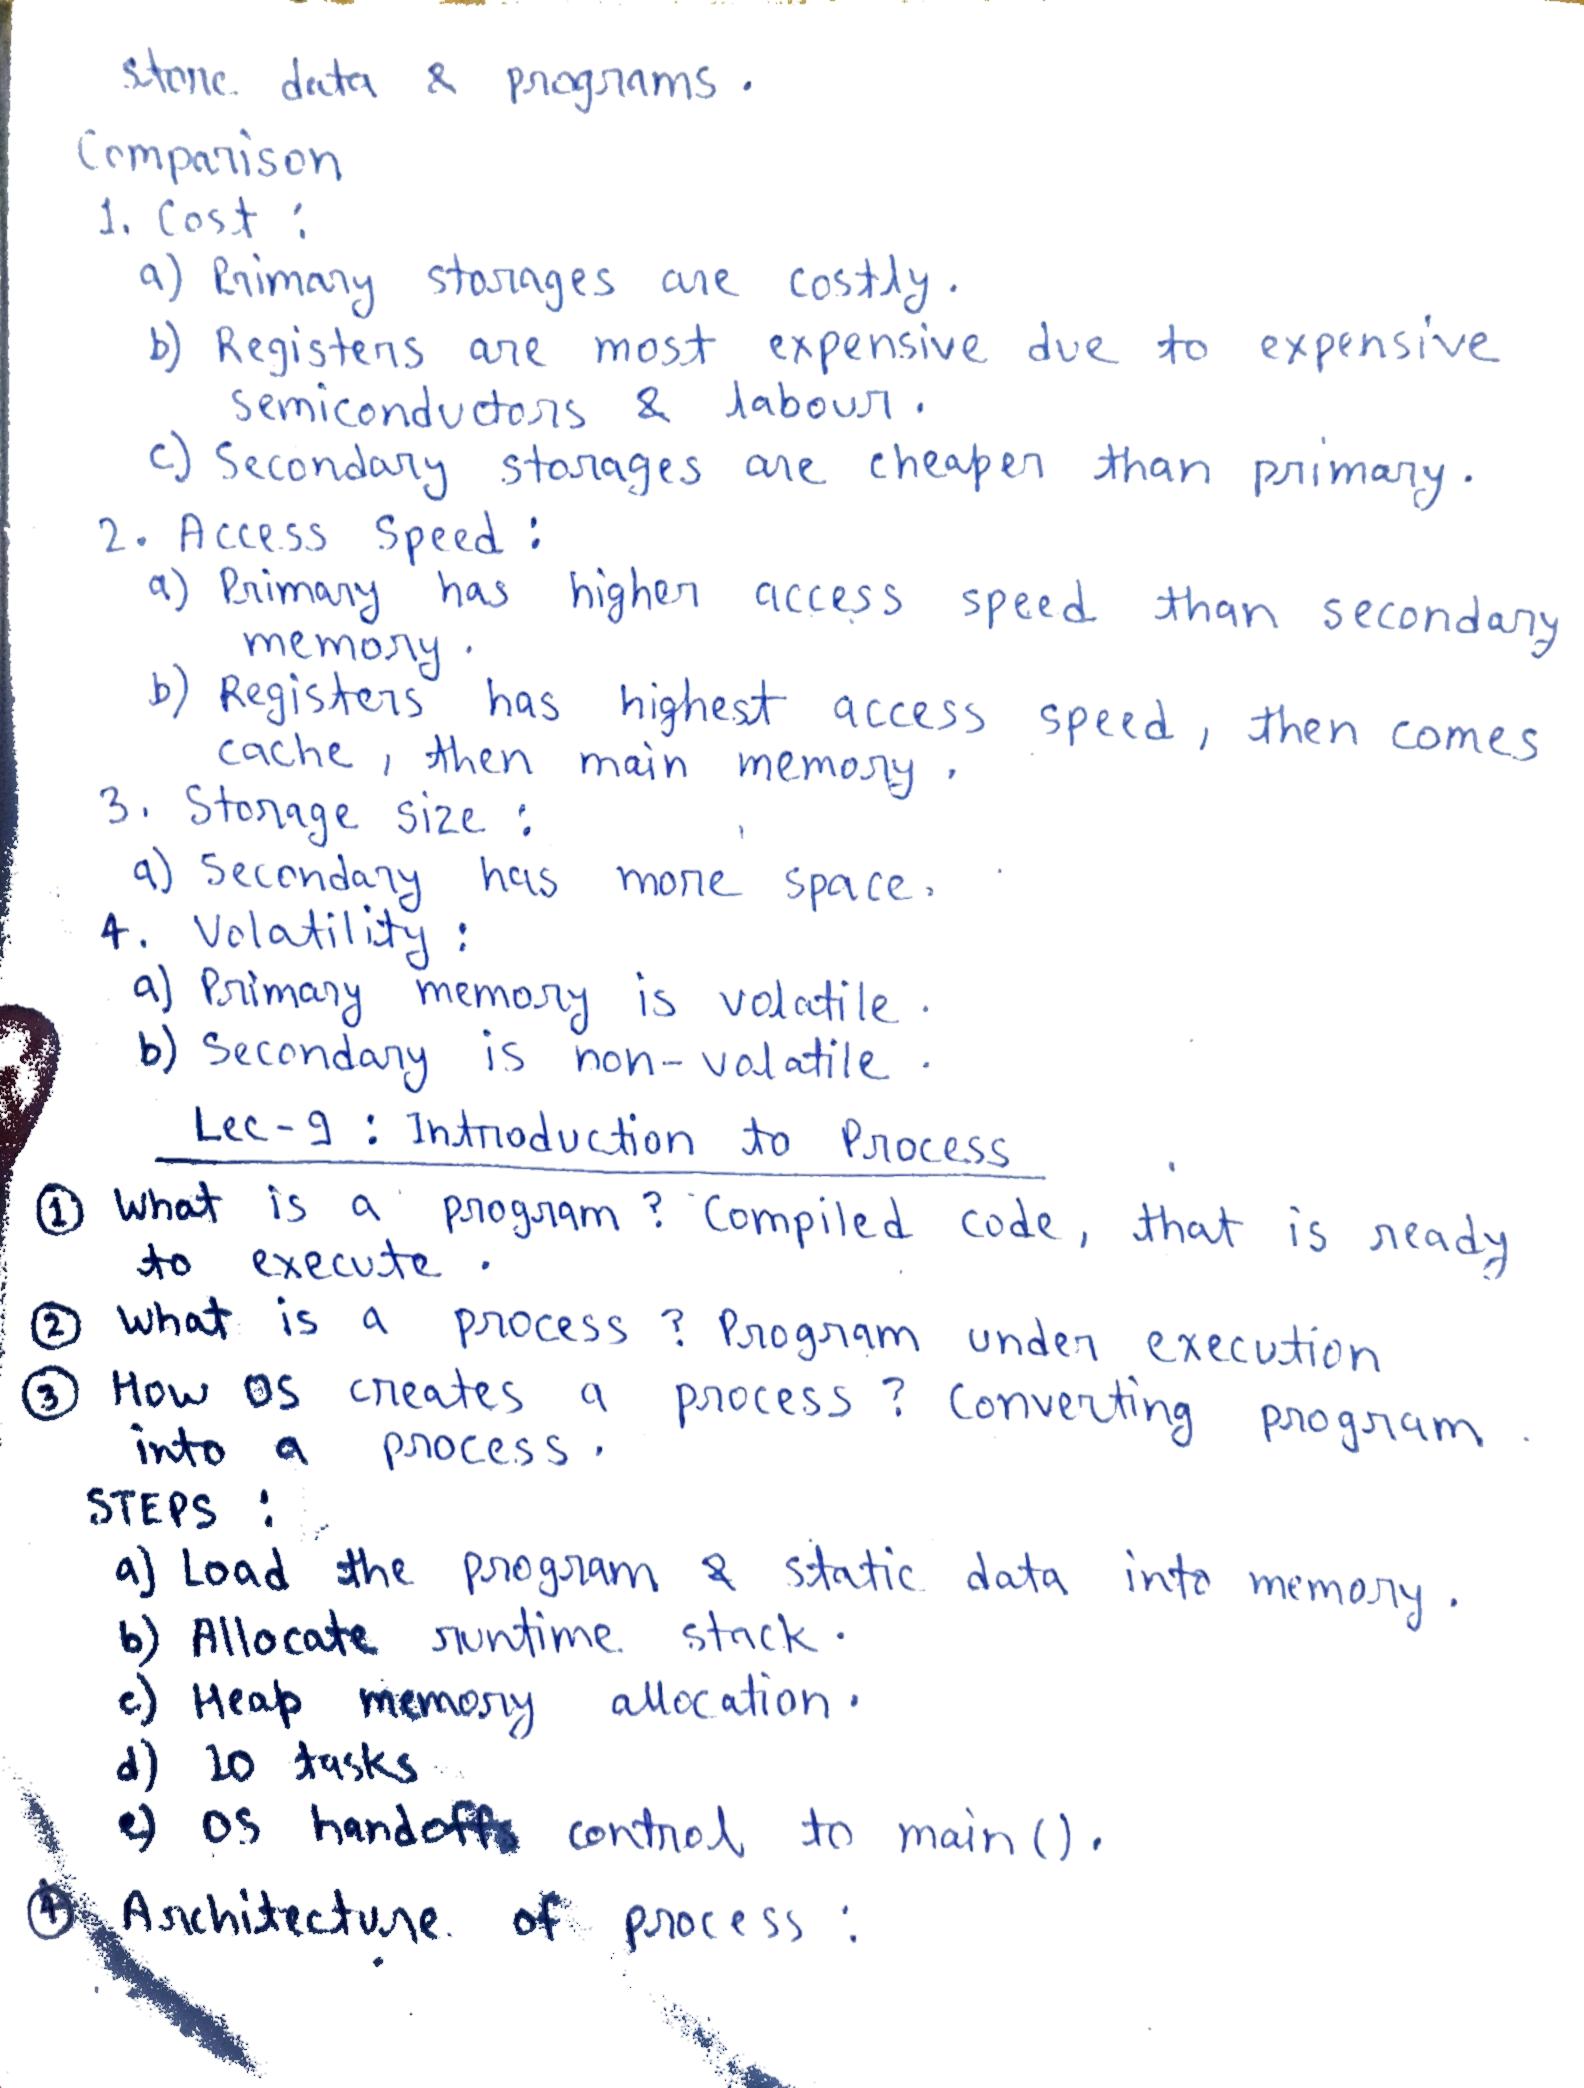 store data & programs.
Comparison
1. Cost :
a) Primary storages are costly.
b) Registers are most expensive due to expensive
semiconductors & labour.
c) Secondary storages are cheaper than primary.
2. Access Speed :
a) Primary has higher access speed than secondary
memory.
b) Registers has highest access speed, then comes
cache, then main memory.
3. Storage size :
a) Secondary has more space.
4. Volatility :
a) Primary memory is volatile.
b) Secondary is non-volatile.
Lec-9 : Introduction to Process
① What is a program? Compiled code, that is ready
to execute.
② What is a process? Program under execution
③ How OS creates a process? Converting program
into a process.
STEPS :
a) Load the program & static data into memory.
b) Allocate runtime stack.
c) Heap memory allocation.
d) IO tasks
e) OS handoffs control to main().
④ Architecture of process :